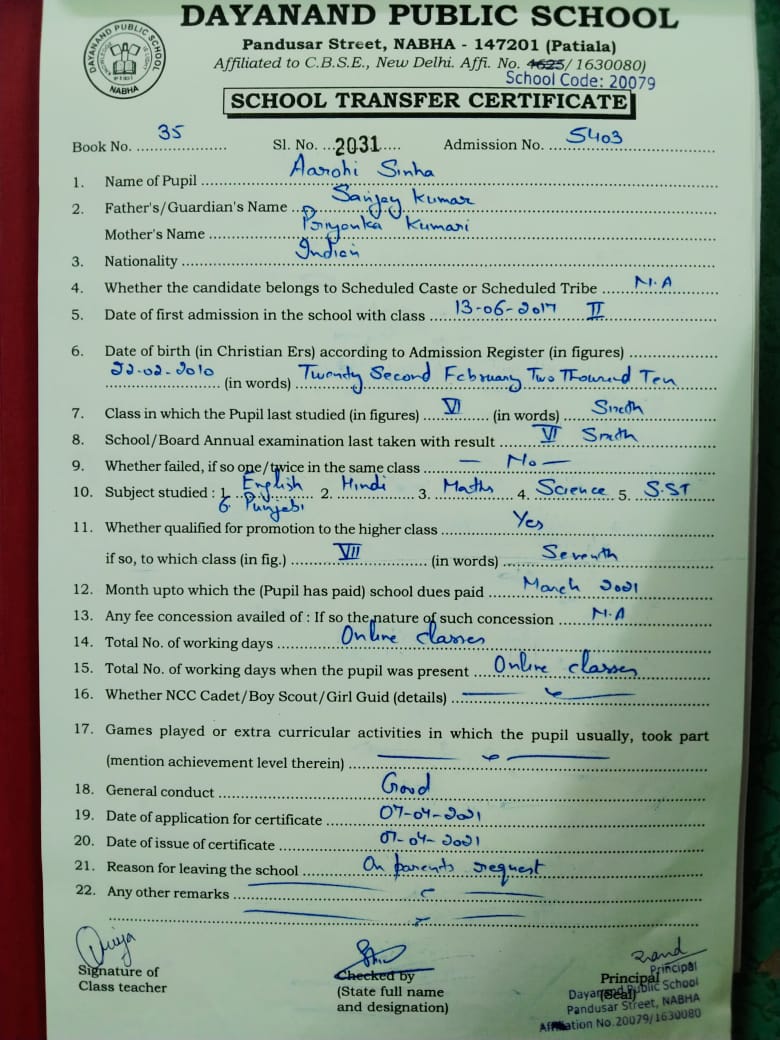 DAYANAND PUBLIC SCHOOL
Pandusar Street, NABHA - 147201 (Patiala)
Affiliated to C.B.S.E., New Delhi. Affi. No. 4625/ 1630080)
School Code: 20079
DAYANAND PUBLIC SCHOOL
NABHA
SCHOOL TRANSFER CERTIFICATE
Book No. 35 Sl. No. 2031 Admission No. 5403
1. Name of Pupil Aarohi Sinha
2. Father's/Guardian's Name Sanjay Kumar
Mother's Name Priyanka Kumari
3. Nationality Indian
4. Whether the candidate belongs to Scheduled Caste or Scheduled Tribe N.A
5. Date of first admission in the school with class 13-06-2017 II
6. Date of birth (in Christian Ers) according to Admission Register (in figures)
22-02-2010 (in words) Twenty Second February Two Thousand Ten
7. Class in which the Pupil last studied (in figures) VI (in words) Sixth
8. School/Board Annual examination last taken with result VI Sixth
9. Whether failed, if so one/twice in the same class — No —
10. Subject studied : 1. English 2. Hindi 3. Maths 4. Science 5. S.ST
6. Punjabi
11. Whether qualified for promotion to the higher class Yes
if so, to which class (in fig.) VII (in words) Seventh
12. Month upto which the (Pupil has paid) school dues paid March 2021
13. Any fee concession availed of : If so the nature of such concession N.A
14. Total No. of working days Online classes
15. Total No. of working days when the pupil was present Online classes
16. Whether NCC Cadet/Boy Scout/Girl Guid (details)
17. Games played or extra curricular activities in which the pupil usually, took part
(mention achievement level therein)
18. General conduct Good
19. Date of application for certificate 07-04-2021
20. Date of issue of certificate 07-04-2021
21. Reason for leaving the school On parents request
22. Any other remarks
Signature of
Class teacher
Checked by
(State full name
and designation)
Principal
(Seal)
Principal
Dayanand Public School
Pandusar Street, NABHA
Affiliation No.20079/1630080